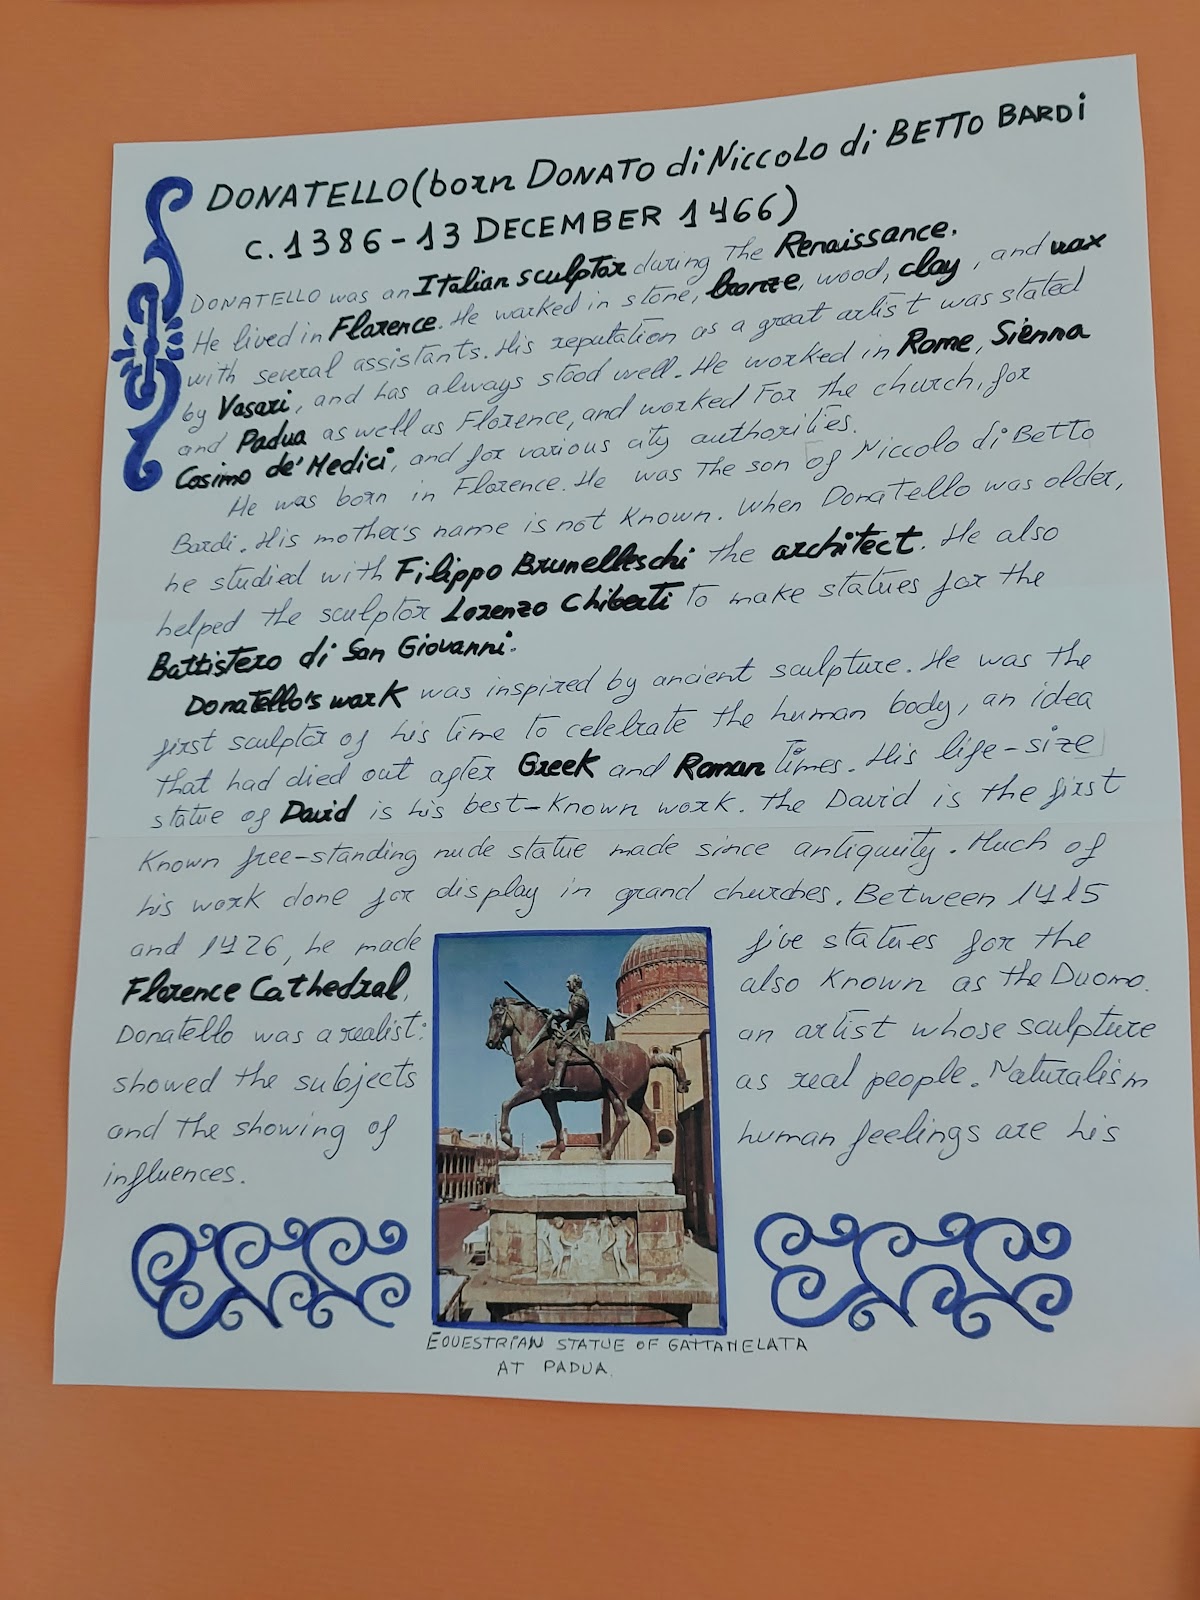 DONATELLO (born DONATO di Niccolo di BETTO BARDi
c. 1386-13 DECEMBER 1466)
DONATELLO was an Italian sculptor during the Renaissance.
He lived in Florence. He worked in stone, bronze, wood, clay, and wax
with several assistants. His reputation as a great artist was stated
by Vasari, and has always stood well. He worked in Rome, Sienna
and Padua as well as Florence, and worked For the church, for
Cosimo de' Medici, and for various city authorities.
He was born in Florence. He was The son of Niccolo di Betto
Bardi. His mother's name is not Known. When Donatello was older,
he studied with Filippo Brunelleschi the architect. He also
helped the sculptor Lorenzo Chiberti To make statues for the
Battistero di San Giovanni.
Donatello's work was inspired by ancient sculpture. He was the
first sculptor of his time to celebrate the human body, an idea
that had died out after Greek and Roman Times. His life-size
statue of David is his best-Known work. The David is the first
Known free-standing nude statue made since antiquity. Much of
his work done for display in grand churches. Between 1415
and 1426, he made five statues for the
Florence Cathedral, also Known as the Duomo.
Donatello was a realist: an artist whose sculpture
showed the subjects as real people. Naturalism
and the showing of human feelings are his
influences.
EQUESTRIAN STATUE OF GATTAMELATA
AT PADUA.